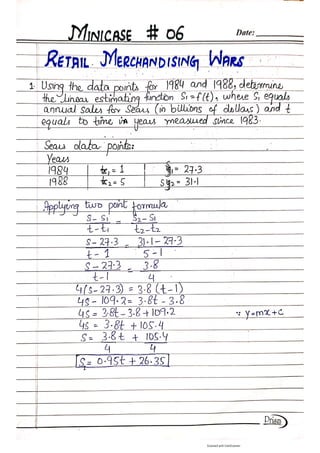 MINICASE # 06
Date:
RETAIL MERCHANDISING WARS
1. Using the data points for 1984 and 1988, determine
the linear estimating function S₁=f(t), where S₁ equals
annual sales for Sears (in billions of dollars) and t
equals to time in years measured since 1983.
Sears data points:
Years S
1984 t₁= 1 S₁= 27.3
1988 t₂= 5 S₂= 31.1
Applying two point formula
S-S₁ = S₂-S₁
t-t₁ t₂-t₂
S-27.3 = 31.1-27.3
t-1 5-1
S-27.3 = 3.8
t-1 4
4(S-27.3) = 3.8 (t-1)
4S - 109.2 = 3.8t - 3.8
4S = 3.8t - 3.8 + 109.2 ∵ y=mx+c
4S = 3.8t + 105.4
S = 3.8t + 105.4
4 4
S = 0.95t + 26.35
Prism
Scanned with CamScanner